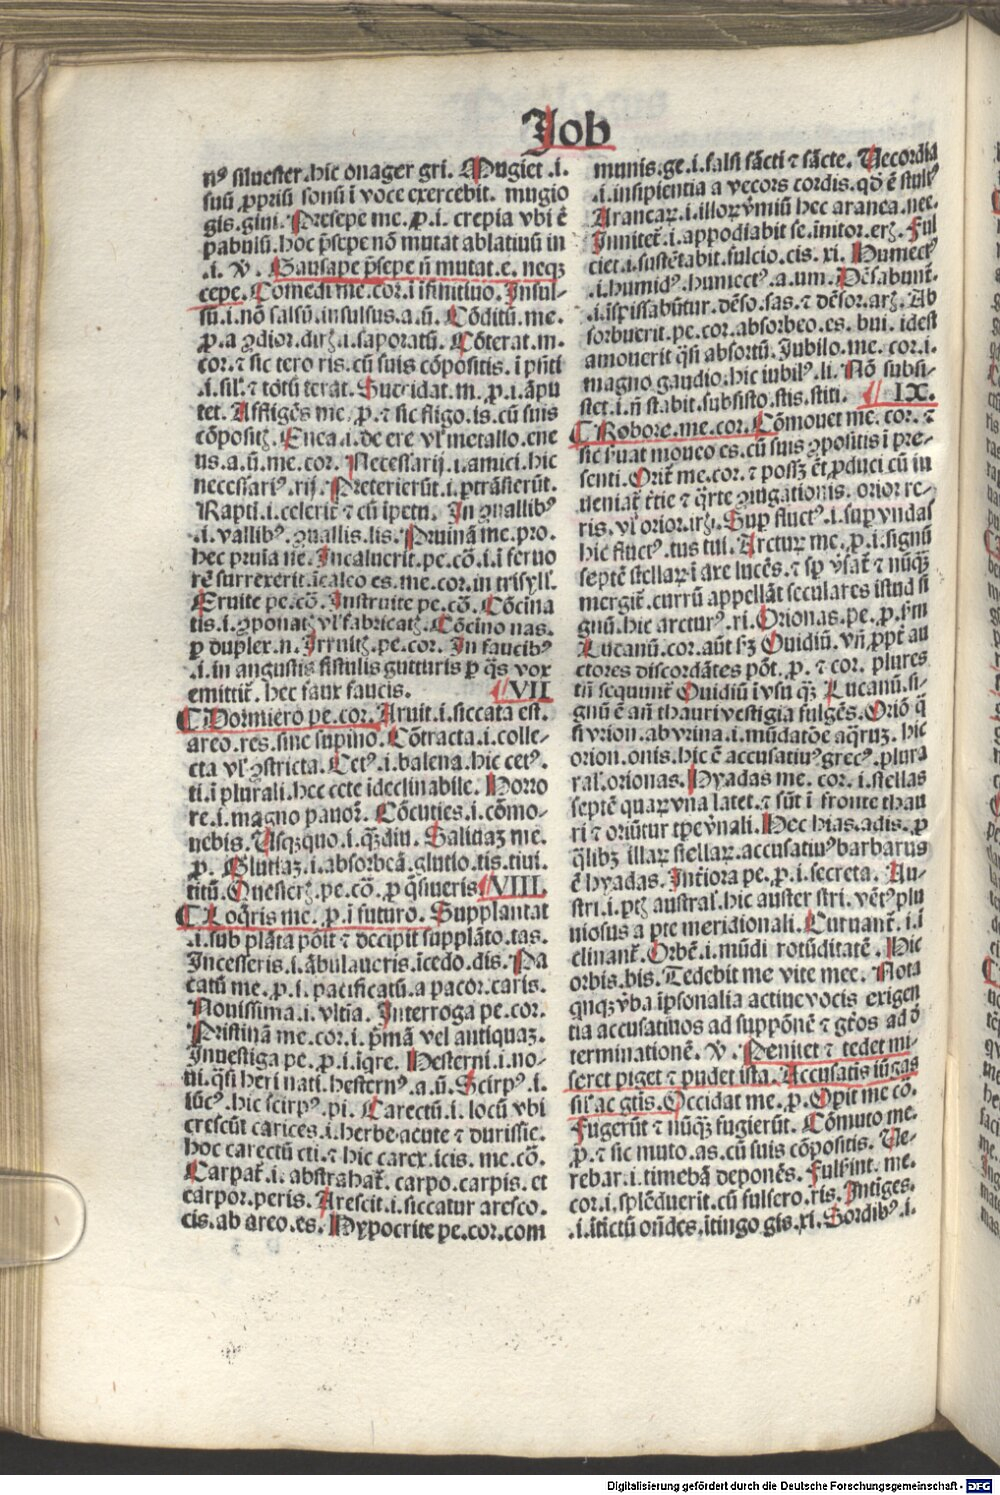 Job
nꝰ siluester.hic onager gri. Mugiet .i.
suū ꝓpriū sonū ī voce exercebit. mugio
gis.giui. Presepe me.ꝓ.i. crepia vbi ē
pabulū.hoc p̄sepe nō mutat ablatiuū in
.i. v̄. Gausape p̄sepe n̄ mutat.e. neqꝫ
cepe. Comedi me.cor.ī īfinitiuo. Insul-
sū.i.nō salsū.insulsus.a.ū. Cōditū.me.
ꝓ.a ꝯdior.dirꝭ.i.saporatū. Cōterat.m.
cor.⁊ sic tero ris.cū suis cōpositis.ī pn̄ti
.i.sil'.⁊ totū terat. Succidat.m.ꝓ.i.āpu
tet. Affligēs me.ꝓ.⁊ sic fligo.is.cū suis
cōpositꝭ. Enea.i.de ere vl' metallo.ene
us.a.ū.me.cor. Necessarij.i.amici.hic
necessariꝰ.rij. Preterierūt.i.ptrāsierūt.
Rapti.i.celerit̄ ⁊ cū īpetu. In ꝯuallibꝰ
.i.vallibꝰ.ꝯuallis.lis. Pruinā me.pro.
hec pruia ne. Incaluerit.pe.cō.i.ī feruo
rē surrexerit.īcalco es.me.cor.in trisyll'.
Eruite pe.cō. Instruite pe.cō. Cōcina
tis.i.ꝯponatꝭ vl' fabricatꝭ. Cōcino nas.
ꝑ duplex.n. Irruitꝭ.pe.cor. In faucibꝰ
.i.in angustis fistulis gutturis ꝑ q̄s vox
emittit̄. hec faux faucis. ¶VII
¶Dormiero pe.cor. Aruit.i.siccata est.
areo.res.sine supino. Cōtracta.i.colle-
cta vl' ꝯstricta. Cetꝰ.i.balena.hic cetꝰ.
ti.ī plurali.hec cete ideclinabile. Horro
re.i.magno pauor̄. Cōcuties.i.cōmo-
uebis. Usqꝫquo.i.q̄ꝫdiu. Saliuaꝫ me.
ꝓ. Glutiaꝫ.i.absorbeā.glutio.tis.tiui.
titū. Quescerꝭ.pe.cō.ꝓ q̄siueris. ¶VIII.
¶Loq̄ris me.ꝓ.ī futuro. Supplantat
.i.sub plāta pōit ⁊ decipit supplāto.tas.
Incesseris.i.ābulaueris.īcedo.dis. Pa
catū me.ꝓ.i.pacificatū.a pacor.caris.
Nouissima.i.vltīa. Interroga pe.cor.
Pristinā me.cor.i.p̄mā vel antiquaꝫ.
Inuestiga pe.ꝓ.i.īqre. Hesterni.i.no-
ui.q̄si heri nati.hesternꝰ.a.ū. Scirpꝰ.i.
iūcꝰ.hic scirpꝰ.pi. Carectū.i.locū vbi
crescūt carices.i.herbe acute ⁊ durissie.
hoc carectū cti.⁊ hic carex.icis. me.cō.
Carpat̄.i.abstrahat̄. carpo.carpis.et
carpor.peris. Arescit.i.siccatur aresco.
cis.ab areo.es. Hypocrite pe.cor.com
munis.ge.i.falsi sācti ⁊ sācte. Uecordia
.i.insipientia a vecors cordis.qd̄ ē stultꝰ
Araneaꝝ.i.illoꝝ v̄miū hec aranea.nee.
Innitet̄.i.appodiabit se.īnitor.erꝭ. Ful
ciet.i.sustētabit.fulcio.cis. xi. Humectꝰ
.i.humidꝰ.humectꝰ.a.um. Dēsabunt̄.
.i.īspissabūtur.dēso.sas.⁊ dēsor.arꝭ. Ab
sorbuerit.pe.cor.absorbeo.es.bui.idest
amouerit q̄si absortū. Jubilo.me.cor.i.
magno gaudio.hic iubilꝰ.li. Nō subsi-
stet.i.n̄ stabit.subsisto.stis.stiti. ¶ IX.
¶Robore.me.cor. Cōmouet me.cor.⁊
sic ꝼuat moueo es.cū suis ꝯpositis ī pre-
senti. Orit̄ me.cor.⁊ possꝫ ēt ꝓduci cū in
ueniat̄ t̄tie ⁊ q̄rte ꝯiugationis. orior re-
ris.vl' orior.irꝭ. Sup fluctꝰ.i.sup vndas
hic fluctꝰ.tus tui. Arctuꝝ me.ꝓ.i.signū
septē stellaꝝ ī axe lucēs.⁊ sꝑ v̄sat̄ ⁊ nūq̄ꝫ
mergit̄.currū appellāt seculares istud si
gnū.hic arcturꝰ.ri. Orionas.pe.ꝓ.ẜm
Lucanū.cor.aūt sꝫ Ouidiū. vn̄ ꝓpt̄ au
ctores discordātes pōt.ꝓ.⁊ cor. plures
tn̄ sequunt̄ Ouidiū ī vsu q̄ꝫ Lucanū.si-
gnū ē añ thauri vestigia fulgēs. Oriō q̄
si vrion.ab vrina.i.mūdatōe aq̄ruꝫ. hic
orion.onis.hic ē accusatiuꝰ grecꝰ.plura
ral'.orionas. Hyadas me. cor.i.stellas
septē quaꝝ vna latet.⁊ sūt ī fronte thau
ri ⁊ oriūtur tꝑe v̄nali. Hec hias.adis.ꝓ
q̄libꝫ illaꝝ stellaꝝ.accusatiuꝰ barbarus
ē hyadas. Int̄iora pe.ꝓ.i.secreta. Au-
stri.i.ptꝭ austral'.hic auster stri.vētꝰ plu
uiosus a pte meridionali. Curuant̄.i.ī
clinant̄. Orbē.i.mūdi rotūditatē. Hic
orbis.bis. Tedebit me vite mee. Nota
qnqꝫ v̄ba īpsonalia actiue vocis exigen
tia accusatiuos ad suppōnē ⁊ gt̄os ad d̄
terminationē. v̄. Penitet ⁊ tedet mi-
seret piget ⁊ pudet ista. Accusatis iūgas
sil' ac gtīs. Occidat me.ꝓ. Opit me cō.
Fugerūt ⁊ nūq̄ꝫ fugierūt. Cōmuto me.
ꝓ.⁊ sic muto.as.cū suis cōpositis. Ue-
rebar.i.timebā deponēs. Fulsīnt. me.
cor.i.splēduerit.cū fulsero.ris. Intiges.
.i.ītīctū oñdes.ītingo gis.xi. Sordibꝰ.i.
Digitalisierung gefördert durch die Deutsche Forschungsgemeinschaft - DFG